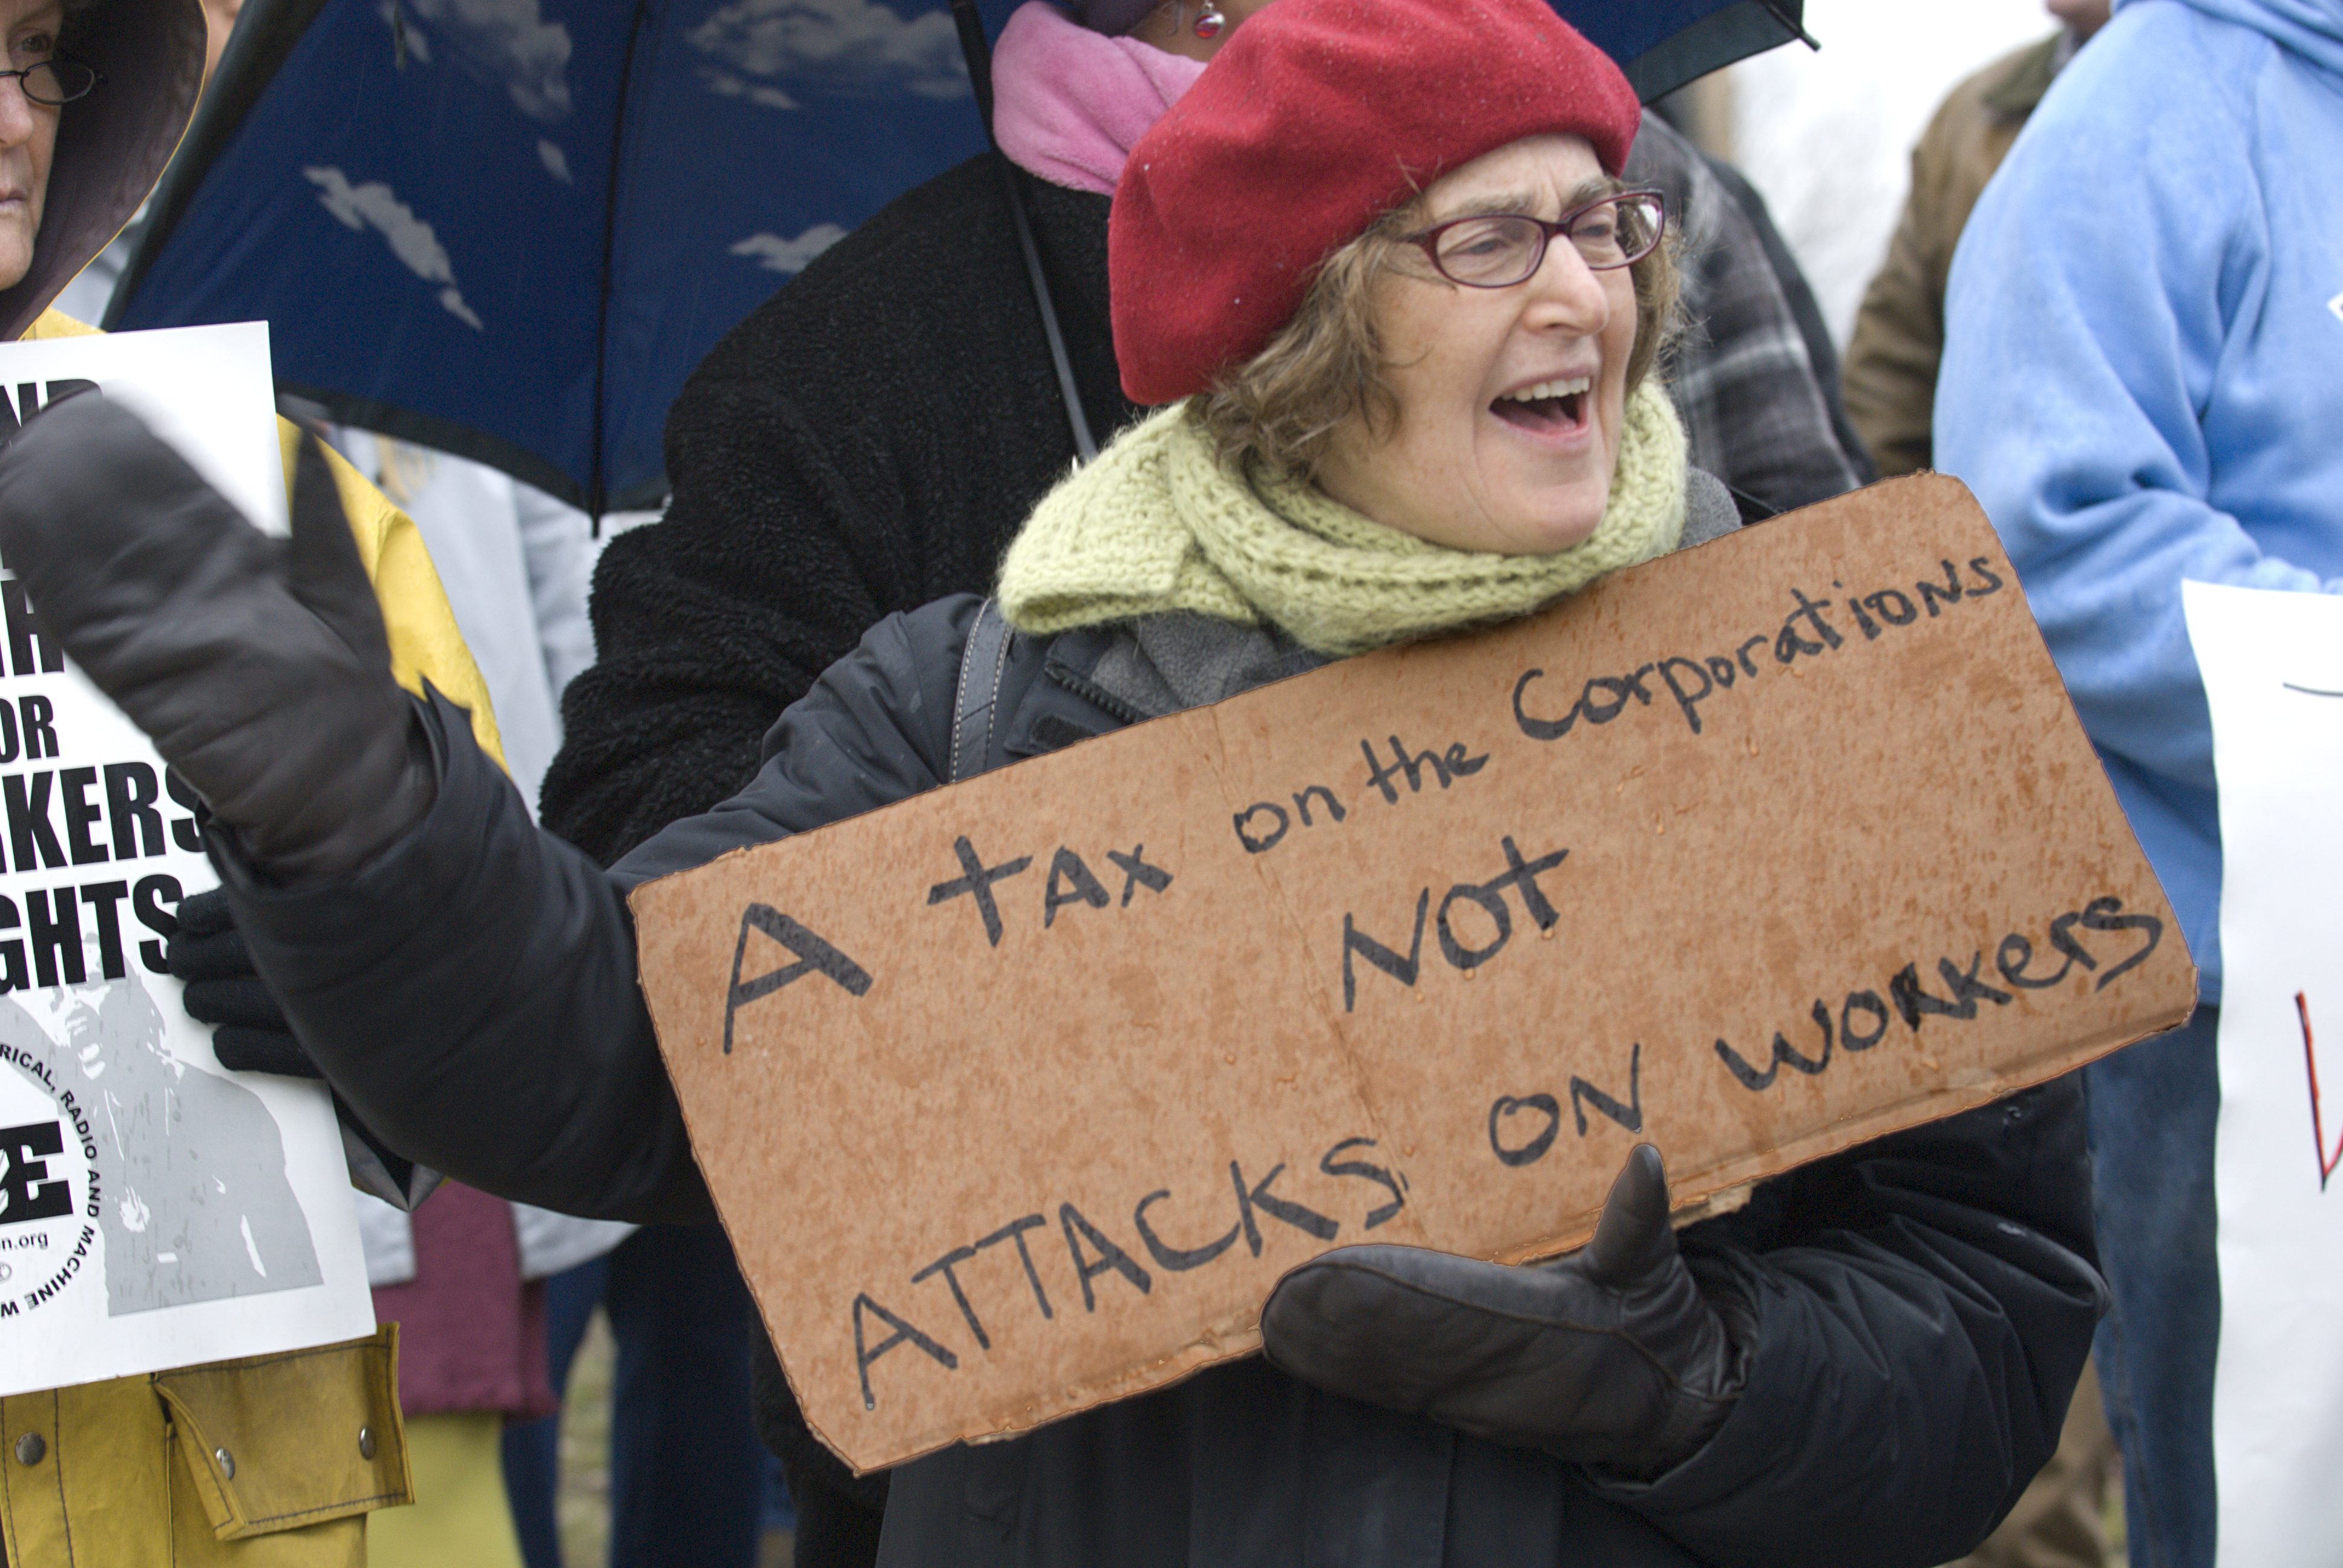 A tax on the Corporations
NOT
ATTACKS ON WORKERS
OR
KERS
GHTS
RICAL, RADIO AND MACHINE W
E
n.org